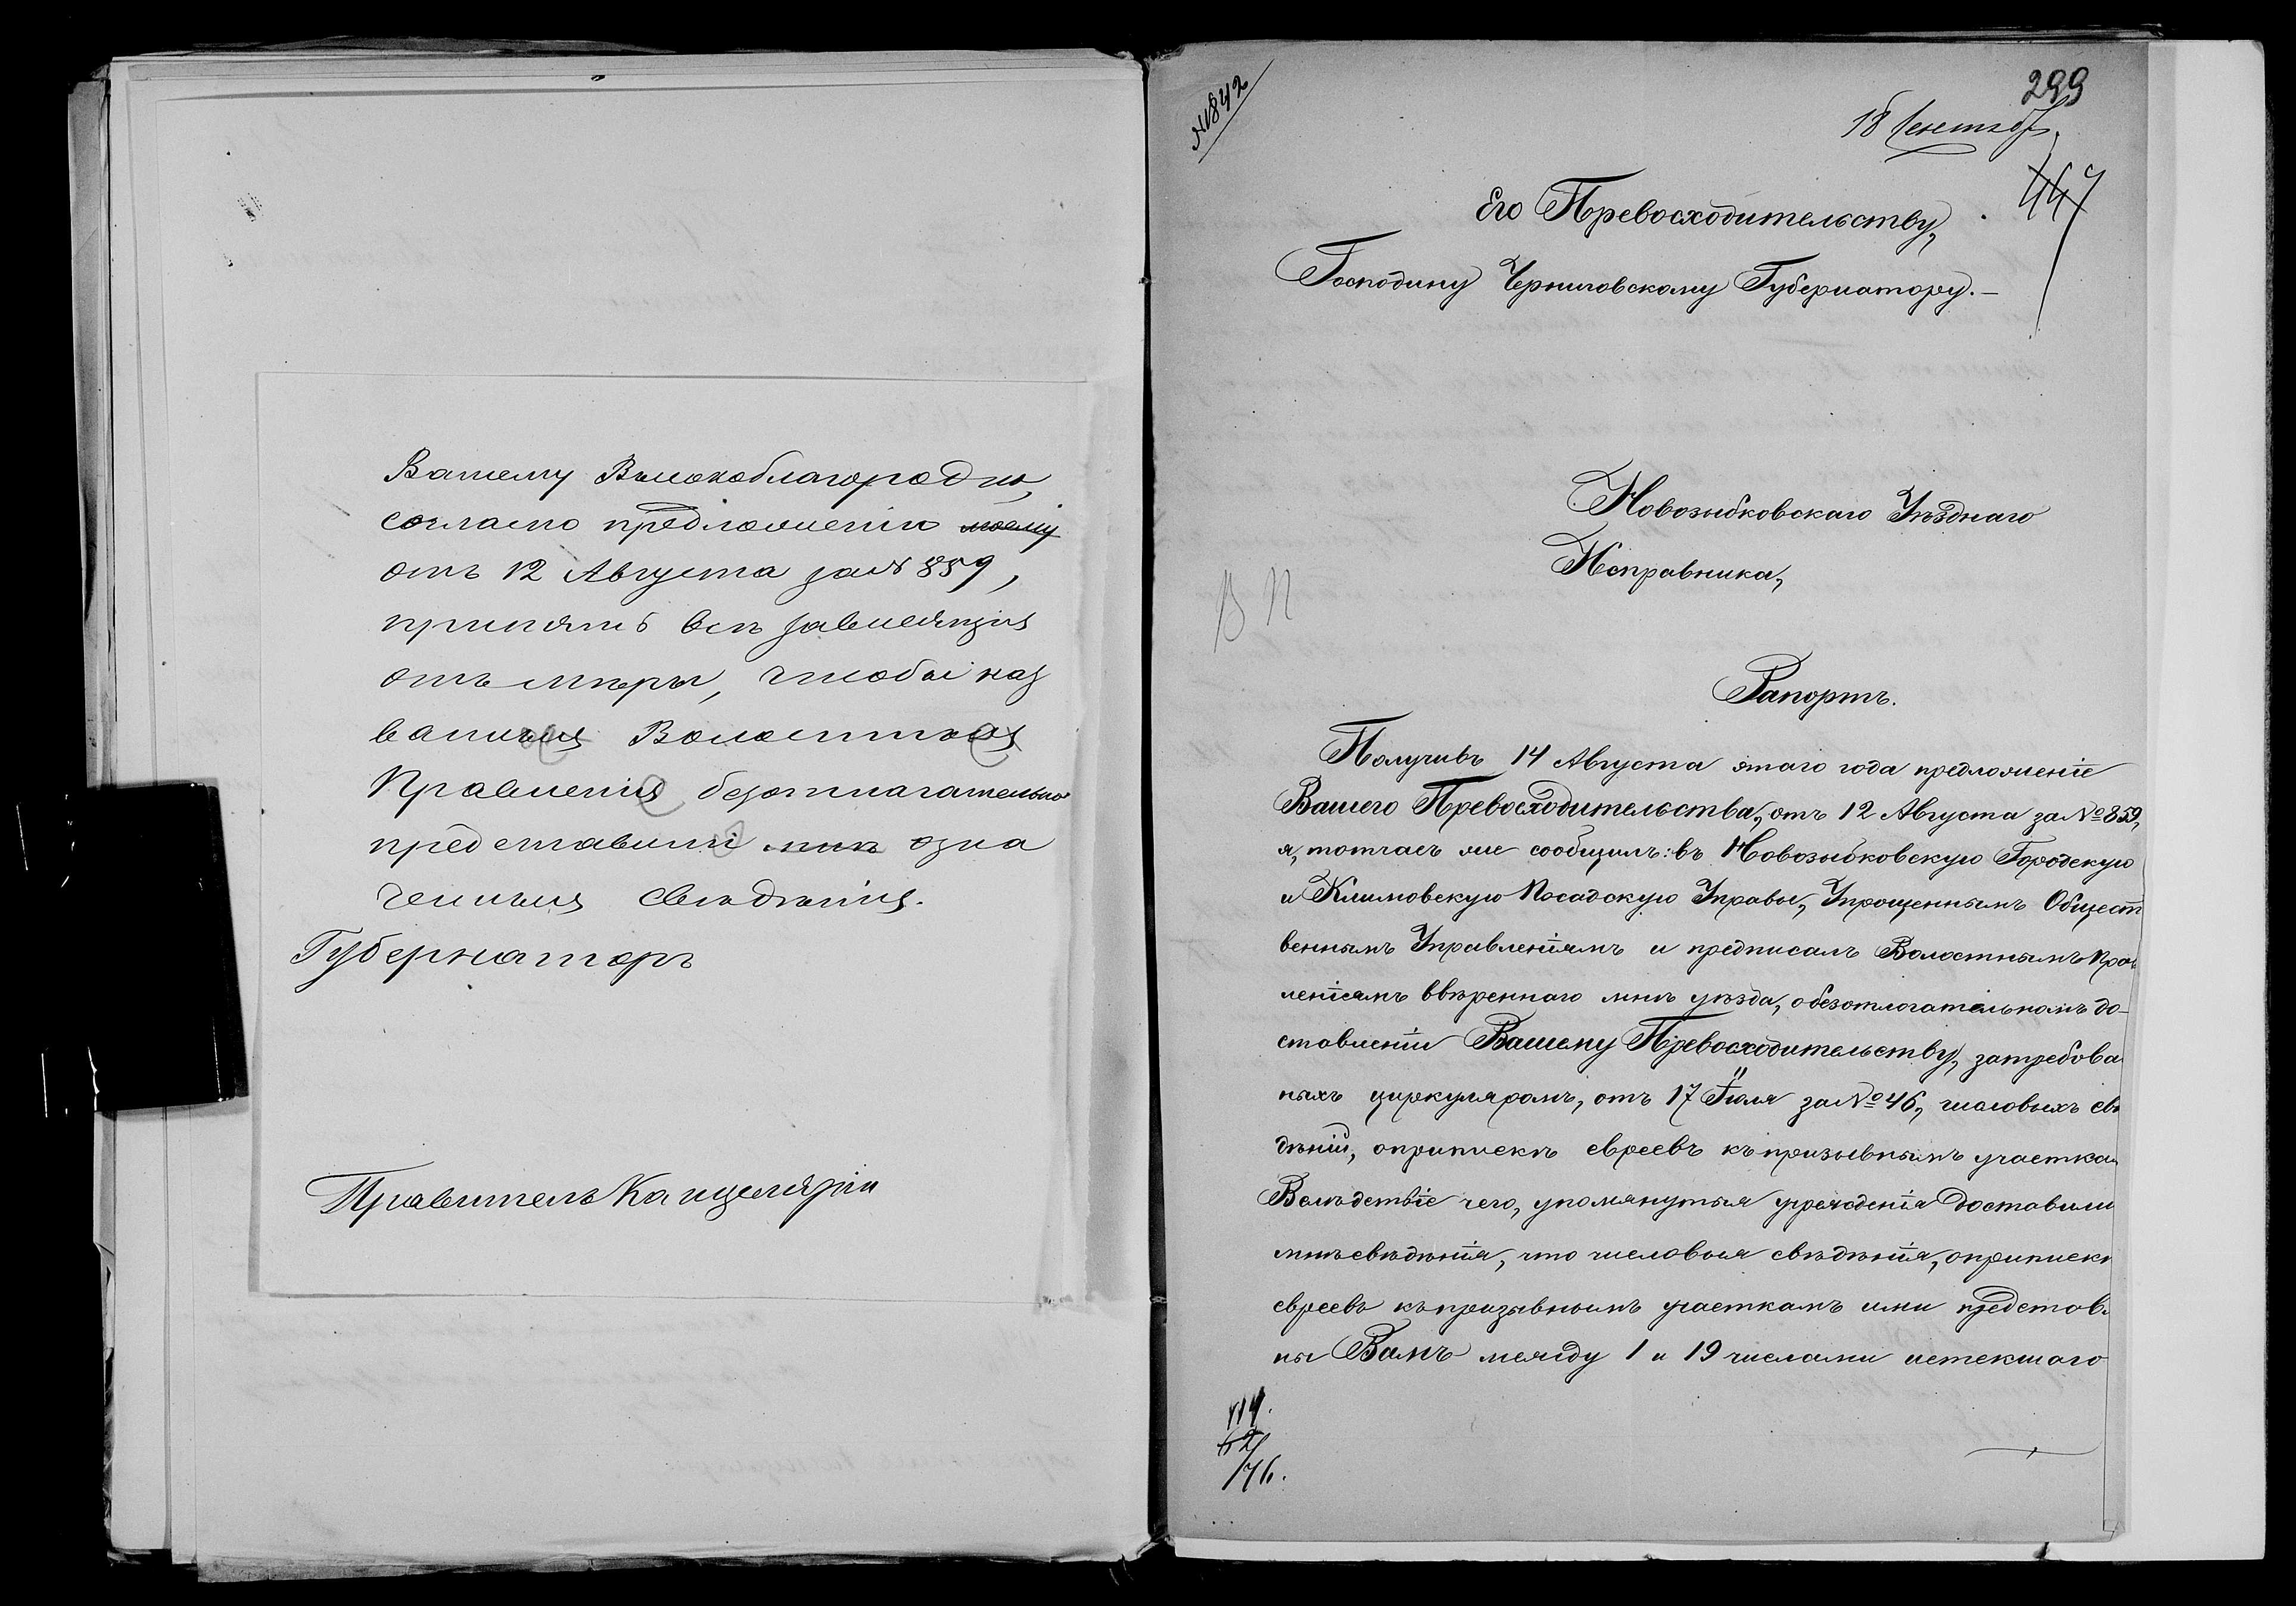 Вашему Высокоблагородiю,
согласно предложенiю моему
отъ 12 Августа за № 859,
принять всѣ зависящiя
отъ мѣры, чтобы наз
ванныя Волостныя
Правленiя безотлагательно
представили мнѣ озна
ченныя свѣдѣнiя.
Губернаторъ
Правитель Канцелярiи
№1842
299
18 Сентяб
447
Его Превосходительству,
Господину Черниговскому Губернатору.—
Новозыбковскаго Уѣзднаго
Исправника,
В П
Рапортъ.
Получивъ 14 Августа этаго года предложенiе
Вашего Превосходительства, отъ 12 Августа за № 859,
я, тотчасъ же сообщилъ: въ Новозыбковскую Городскую
и Климовскую Посадскую Управы, Упрощеннымъ Общест
веннымъ Управленiямъ и предписалъ Волостнымъ Прав
ленiямъ ввѣреннаго мнѣ уѣзда, о безотлогательномъ до-
ставленiи Вашему Превосходительству, затребова
ныхъ циркуляромъ, отъ 17 Iюля за № 46, числовыхъ свѣ
дѣнiй, о припискѣ евреевъ къ призывнымъ участка
Вслѣдствiе чего, упомянутыя учрежденiя доставили
мнѣ свѣдѣнiя, что числовыя свѣдѣнiя, о приписк
евреевъ къ призывнымъ участкамъ ими представ
ны Вамъ между 1 и 19 числами истекшаго
114.
62/
/76.